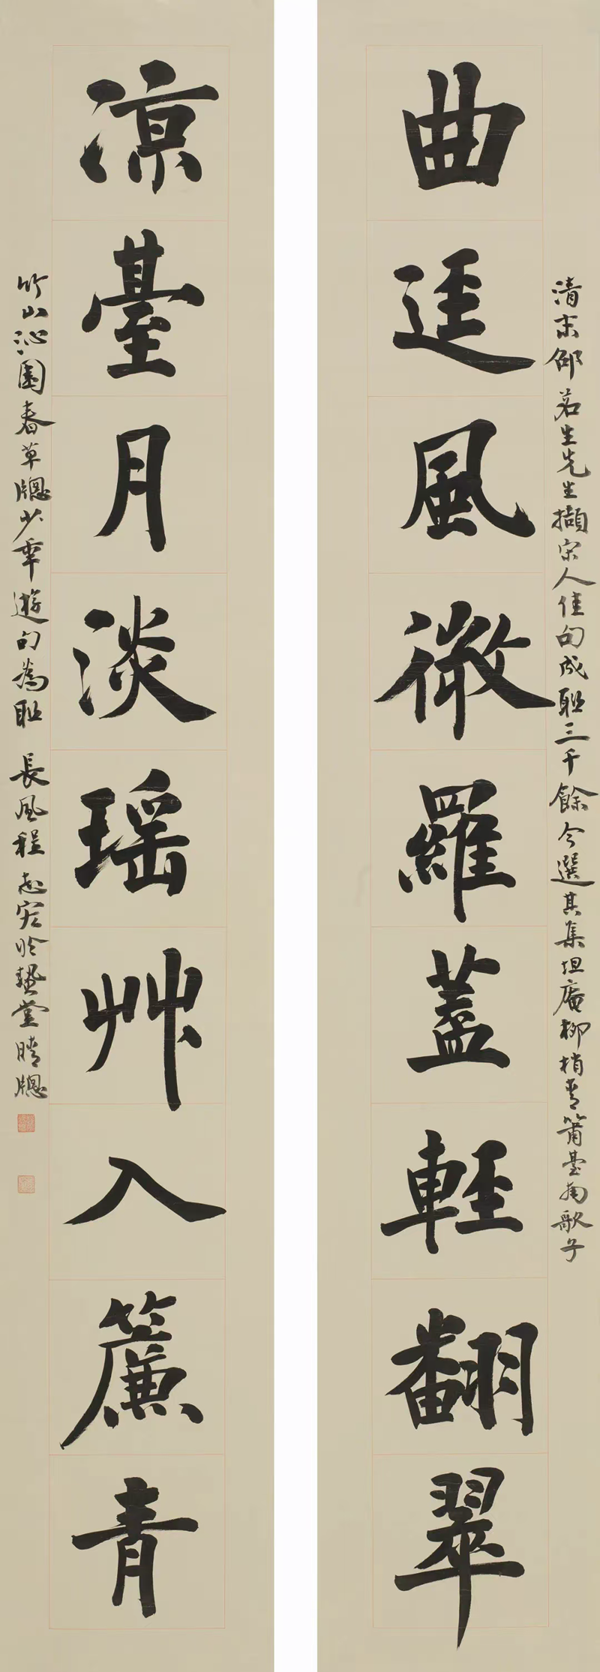 清末邵茗生先生擷宋人佳句成聯三千餘今選其集坦庵柳梢青簫臺南歌子
曲逕風微羅蓋輕翻翠
涼臺月淡瑤艸入簾青
竹山沁園春草牕少年遊句為聯 長風程志宏於堂晴牕